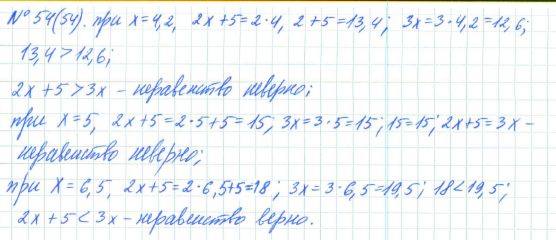 № 54(54). при x=4,2, 2x+5=2·4, 2+5=13,4; 3x=3·4,2=12,6;
13,4>12,6;
2x+5>3x - неравенство неверно;
при x=5, 2x+5=2·5+5=15, 3x=3·5=15; 15=15; 2x+5=3x -
неравенство неверно;
при X=6,5, 2x+5=2·6,5+5=18; 3x=3·6,5=19,5; 18<19,5;
2x+5<3x - неравенство верно.